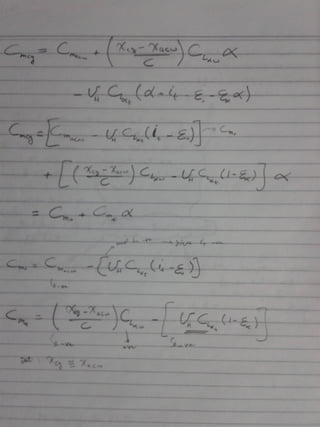 C_mcg = C_macw + (x_cg - x_acw / c) C_Lαw α
- V_H C_Lαt (α + i_t - ε_o - ε_α α)
C_mcg = [C_macw - V_H C_Lαt (i_t - ε_o)] → C_mo
+ [(x_cg - x_acw / c) C_Lαw - V_H C_Lαt (1-ε_α)] α
= C_mo + C_mα α
C_mo = C_macw - [V_H C_Lαt (i_t - ε_o)]
↳ -ve
C_mα = (x_cg - x_acw / c) C_Lαw - [V_H C_Lαt (1-ε_α)]
↳ -ve +ve ↳ -ve
set : x_cg ≡ x_acw